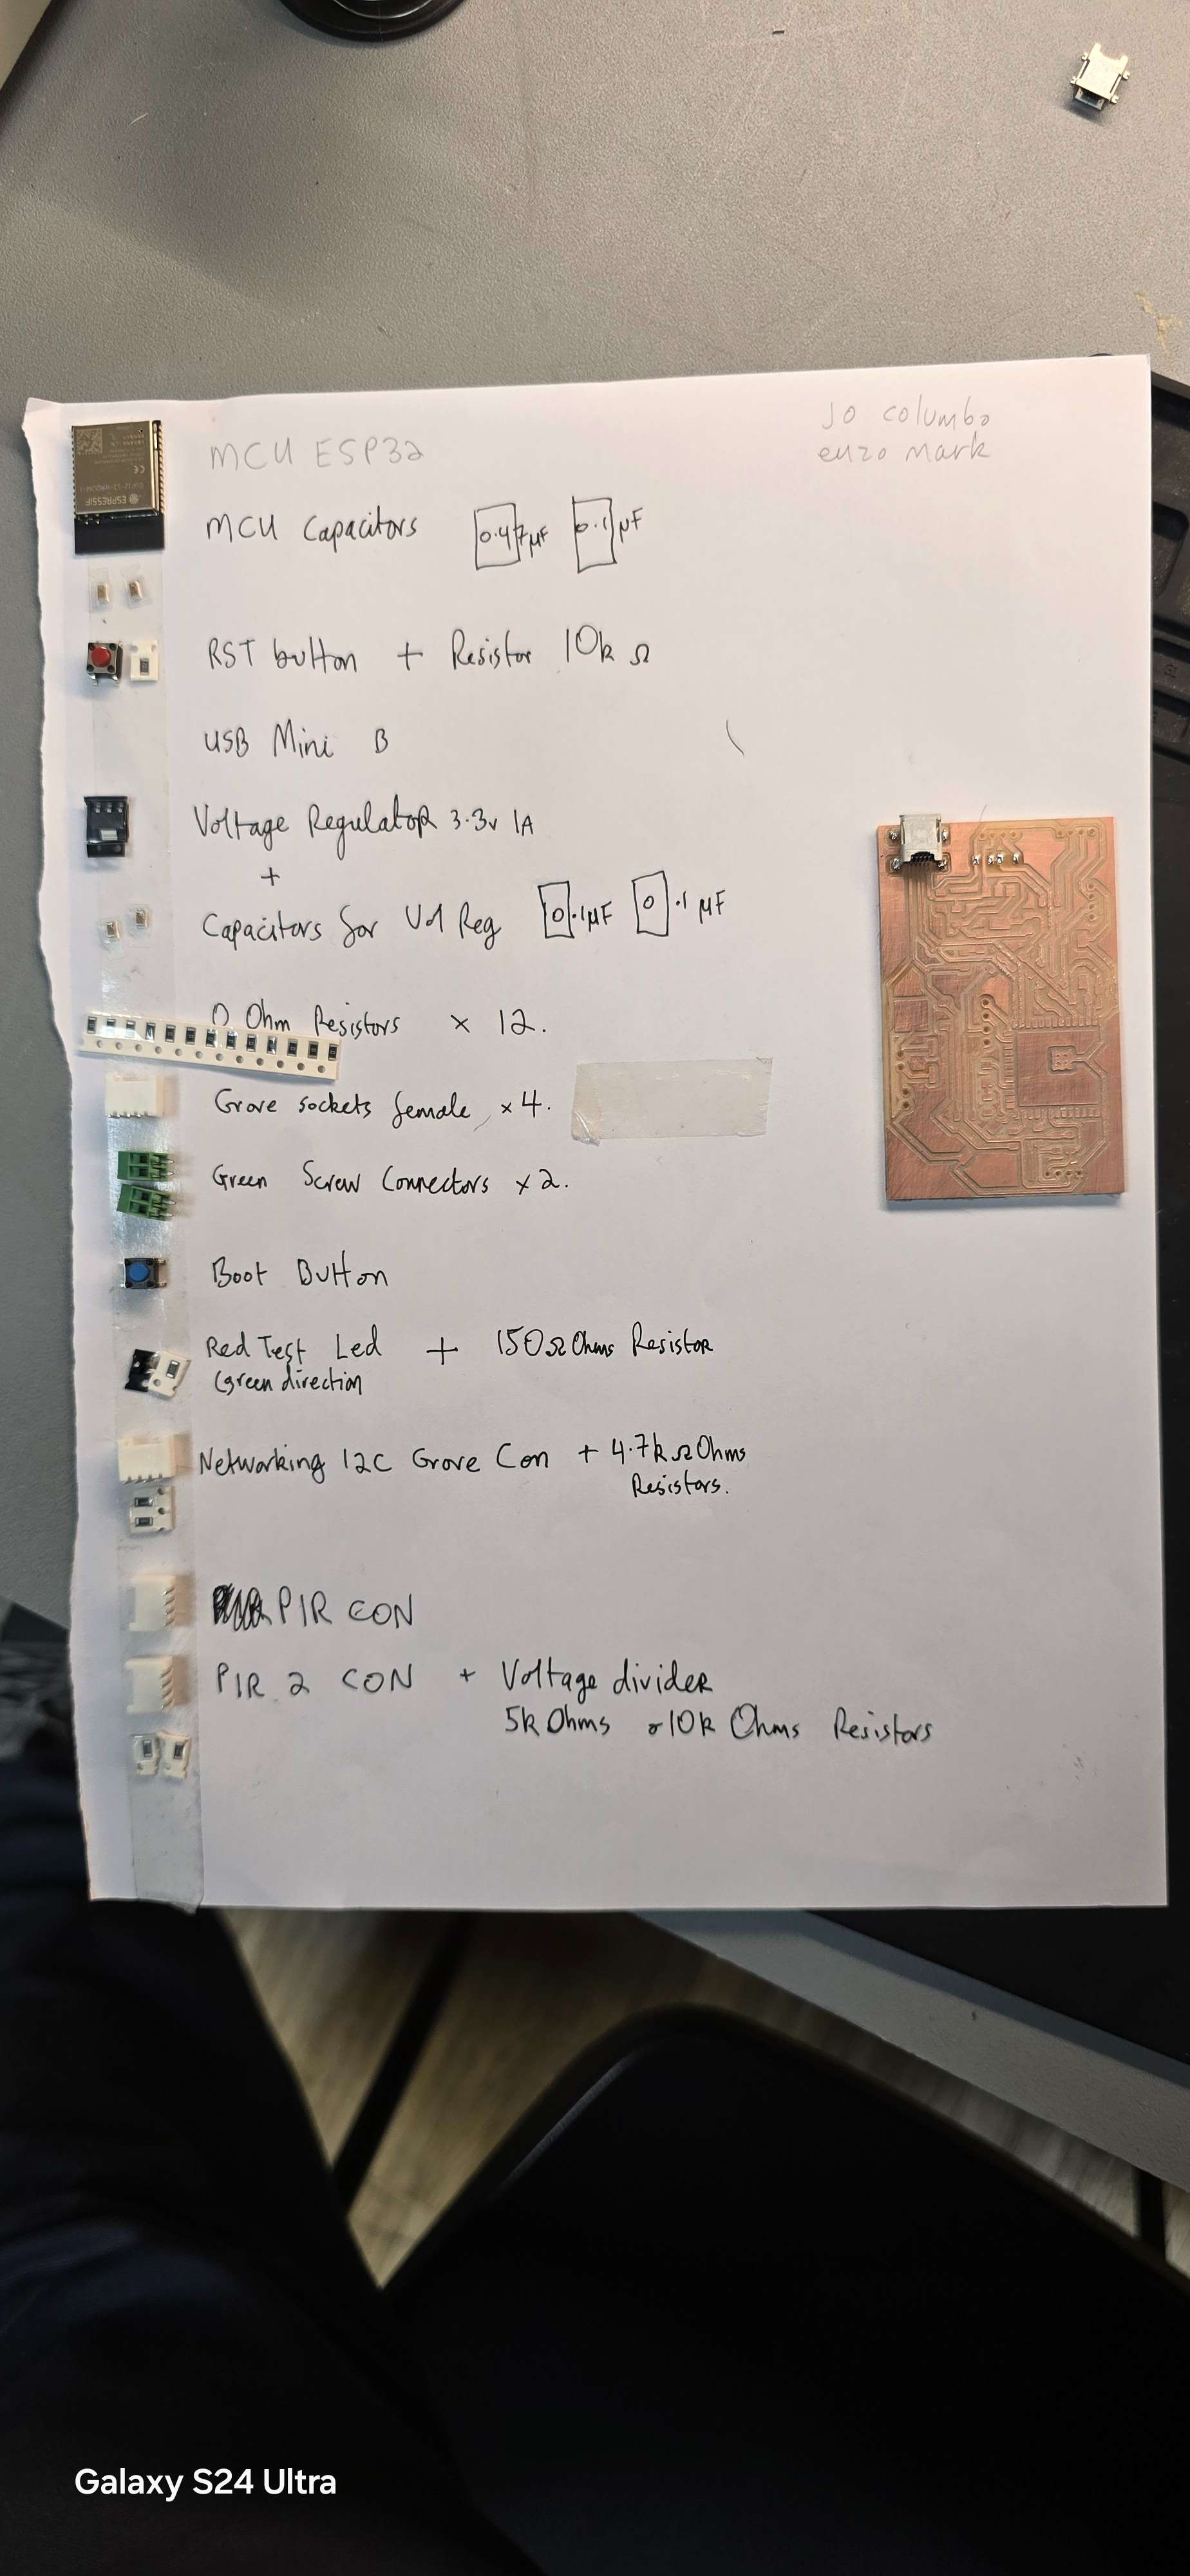 Jo Columbo
enzo mark
MCU ESP32
ESPRESSIF
MCU Capacitors 0.47µF 0.1µF
RST button + Resistor 10k Ω
USB Mini B
Voltage Regulator 3.3v 1A
+
Capacitors for Vol Reg 0.1µF 0.1µF
0 Ohm Resistors x 12.
Grove sockets female x 4.
Green Screw Connectors x 2.
Boot Button
Red Test Led + 150Ω Ohms Resistor
(green direction
Networking I2C Grove Con + 4.7k Ω Ohms
Resistors.
PIR CON
PIR 2 CON + Voltage divider
5k Ohms 10k Ohms Resistors
Galaxy S24 Ultra